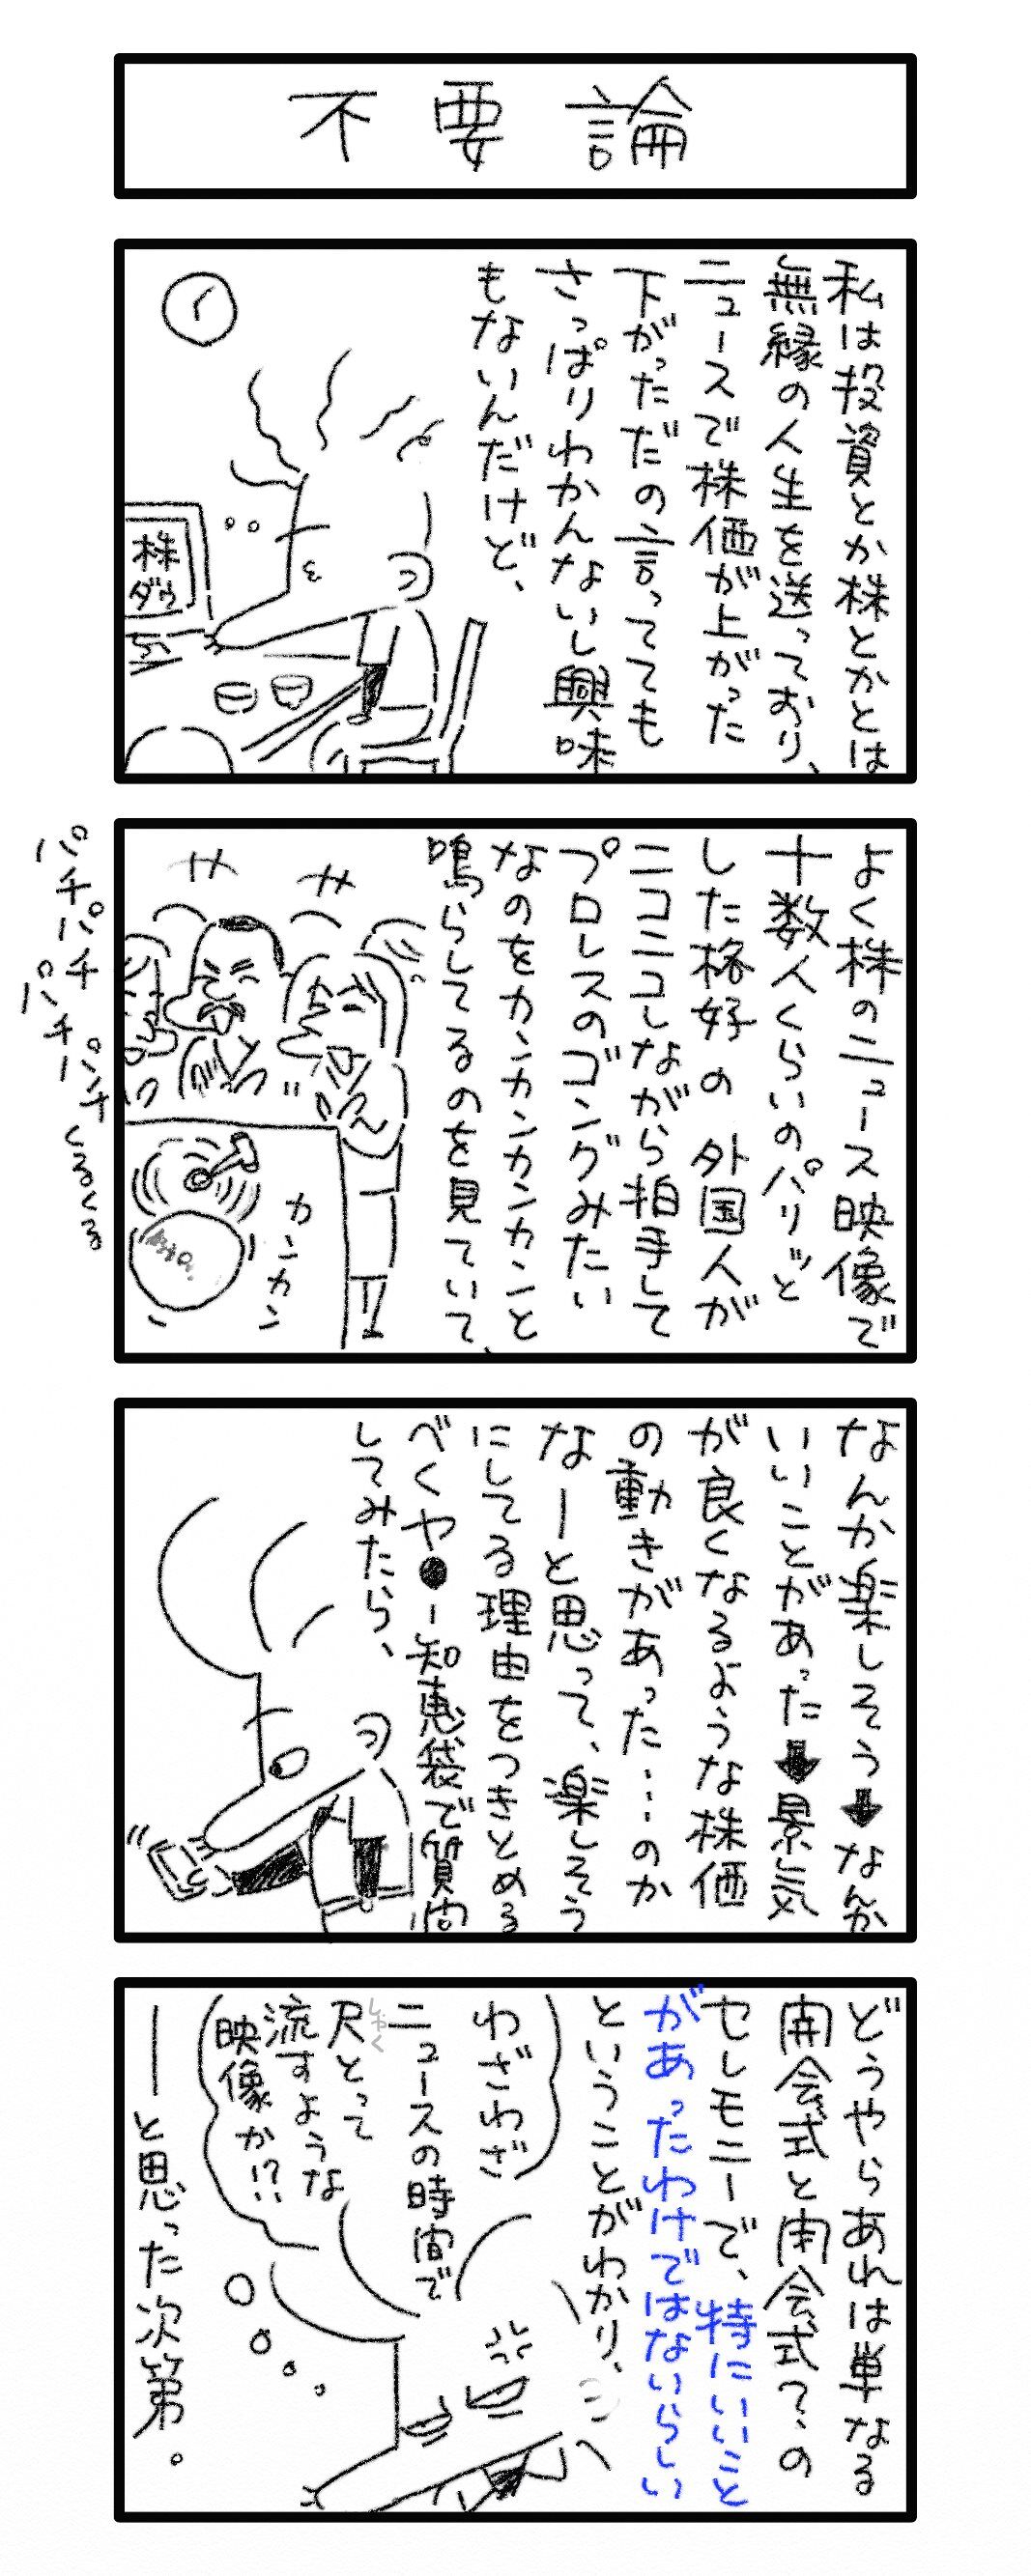 不要論
私は投資とか株とかとは
無縁の人生を送っており、
ニュースで株価が上がった
下がっただの言ってても
さっぱりわかんないし興味
もないんだけど、
株
ダウ
よく株のニュース映像で
十数人くらいのパリッと
した格好の外国人が
ニコニコしながら拍手して
プロレスのゴングみたい
なのをカンカンカンカンと
鳴らしてるのを見ていて、
カンカン
パチパチパチパチ
くるくる
なんか楽しそう⬇なんか
いいことがあった⬇景気
が良くなるような株価
の動きがあった…のか
なーと思って、楽しそう
にしてる理由をつきとめる
べくヤ●ー知恵袋で質問
してみたら、
どうやらあれは単なる
開会式と閉会式？の
セレモニーで、特にいいこと
があったわけではないらしい
ということがわかり、
わざわざ
ニュースの時間で
尺とって
しゃく
流すような
映像か!?
――と思った次第。